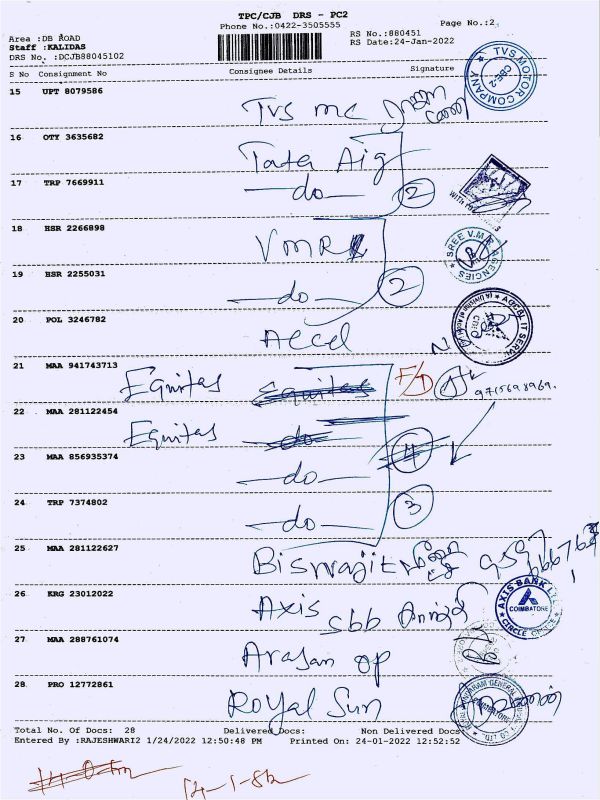 TPC/CJB DRS - PC2
Phone No.:0422-3505555
Page No.:2
Area :DB ROAD
Staff :KALIDAS
DRS No. :DCJB88045102
RS No.:880451
RS Date:24-Jan-2022
S No Consignment No Consignee Details Signature
15 UPT 8079586 Tvs mc
TVS MOTOR COMPANY CBE-2
16 OTY 3635682 Tata Aig
17 TRP 7669911 -do- 2
18 HSR 2266898 VMR
SREE V.M.R AGENCIES
19 HSR 2255031 -do- 2
20 POL 3246782 Accel
21 MAA 941743713 Equitas Equitas F/D
9715698969.
22 MAA 281122454 Equitas do
23 MAA 856935374 -do- 4
24 TRP 7374802 -do- 3
25 MAA 281122627 Biswajit
26 KRG 23012022 Axis Sbb
AXIS BANK LTD COIMBATORE CIRCLE OFFICE
27 MAA 288761074 Arasan op
28 PRO 12772861 Royal Sun
Total No. Of Docs: 28 Delivered Docs: Non Delivered Docs
Entered By :RAJESHWARI2 1/24/2022 12:50:48 PM Printed On: 24-01-2022 12:52:52